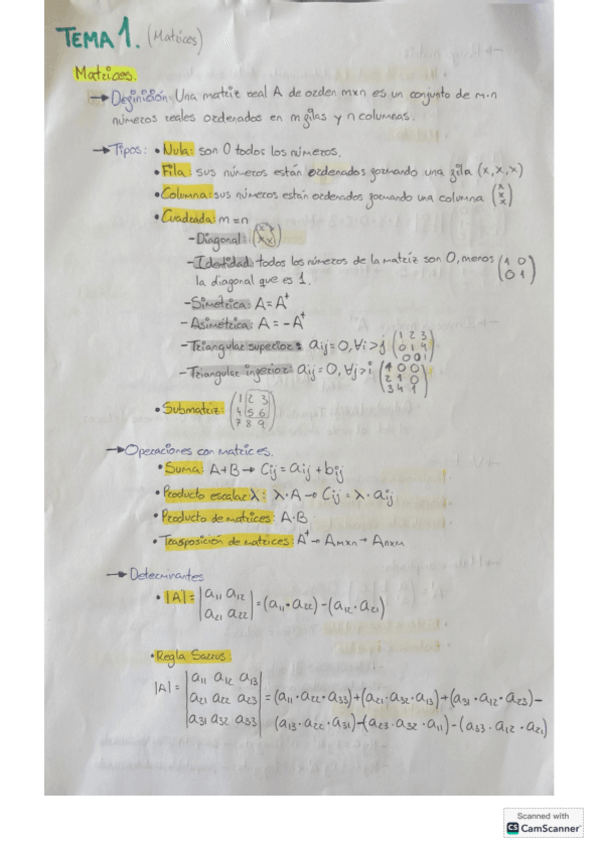 TEMA 1. (Matrices)
Matrices.
→ Definición: Una matriz real A de orden mxn es un conjunto de m·n
números reales ordenados en m filas y n columnas.
→ Tipos: • Nula: son 0 todos los números.
• Fila: sus números están ordenados formando una fila (x, x, x)
• Columna: sus números están ordenados formando una columna (x x x)
• Cuadrada: m = n
- Diagonal: (x x x x)
- Identidad: todos los números de la matriz son 0, menos (1 0
la diagonal que es 1. 0 1)
- Simétrica: A = A^t
- Asimétrica: A = -A^t
- Triangular superior: aij = 0, ∀i > j (1 2 3
0 1 4
0 0 1)
- Triangular inferior: aij = 0, ∀j > i (1 0 0
2 1 0
3 4 1)
• Submatriz: (1 2 3
4 5 6
7 8 9)
→ Operaciones con matrices.
• Suma: A+B → Cij = aij + bij
• Producto escalar λ: λ·A → Cij = λ·aij
• Producto de matrices: A·B
• Trasposición de matrices: A^t → Amxn → Anxm
→ Determinantes
• |A| = |a11 a12
a21 a22| = (a11·a22) - (a12·a21)
• Regla Sarrus:
|A| = |a11 a12 a13
a21 a22 a23 = (a11·a22·a33)+(a21·a32·a13)+(a31·a12·a23)-
a31 a32 a33| (a13·a22·a31)-(a23·a32·a11)-(a33·a12·a21)
Scanned with
CS CamScanner